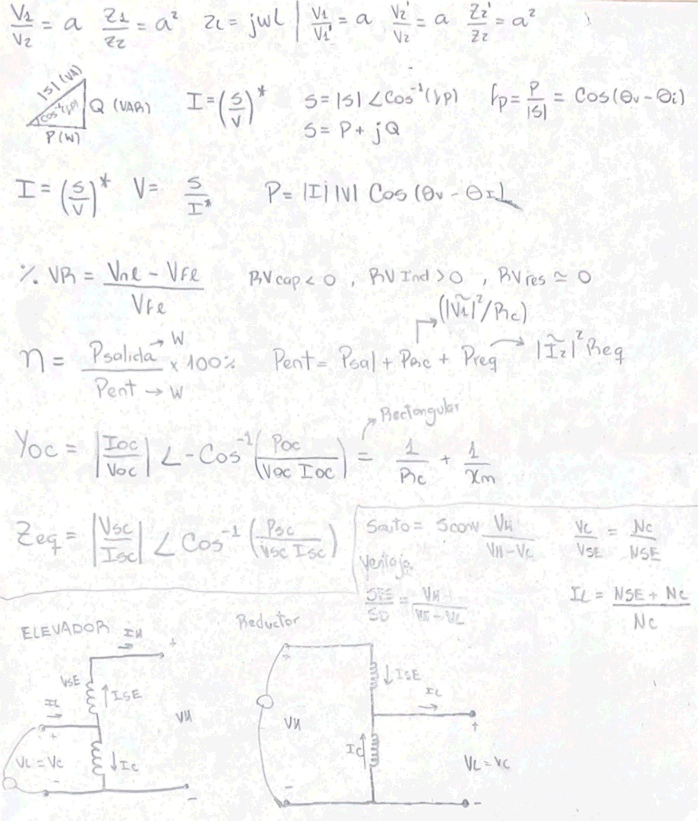 V1/V2 = a   Z1/Z2 = a²   ZL = jwL | V1/V1' = a   V2'/V2 = a   Z2'/Z2 = a²
|S| (VA)   Cos⁻¹(fp)   Q (VAR)   P(W)   I = (S/V)*   S = |S| ∠Cos⁻¹(fp)   fp = P/|S| = Cos(θv - θi)
S = P + jQ
I = (S/V)*   V = S/I*   P = |I| |V| Cos (θv - θI)
% VR = (Vnl - Vfl)/Vfl   RVcap < 0 , RV Ind > 0 , RVres ≃ 0
(|V1|²/Rc)
η = Psalida → W / Pent → W x 100%   Pent = Psal + PRc + PReq → |I2|² Req
Rectangular
Yoc = |Ioc/Voc| ∠ -Cos⁻¹(Poc/(Voc Ioc)) = 1/Rc + 1/Xm
Zeq = |Vsc/Isc| ∠ Cos⁻¹(Psc/(Vsc Isc))
Sauto = Sconv VH/(VH-VL)   VC/VSE = NC/NSE
Ventaja
VH   IL = (NSE + NC)/NC
ELEVADOR
IH
+
VSE
ISE
IL
+
VH
VL = VC
IC
-
-
Reductor
ISE
IL
VH
+
IC
VL = VC
-
-